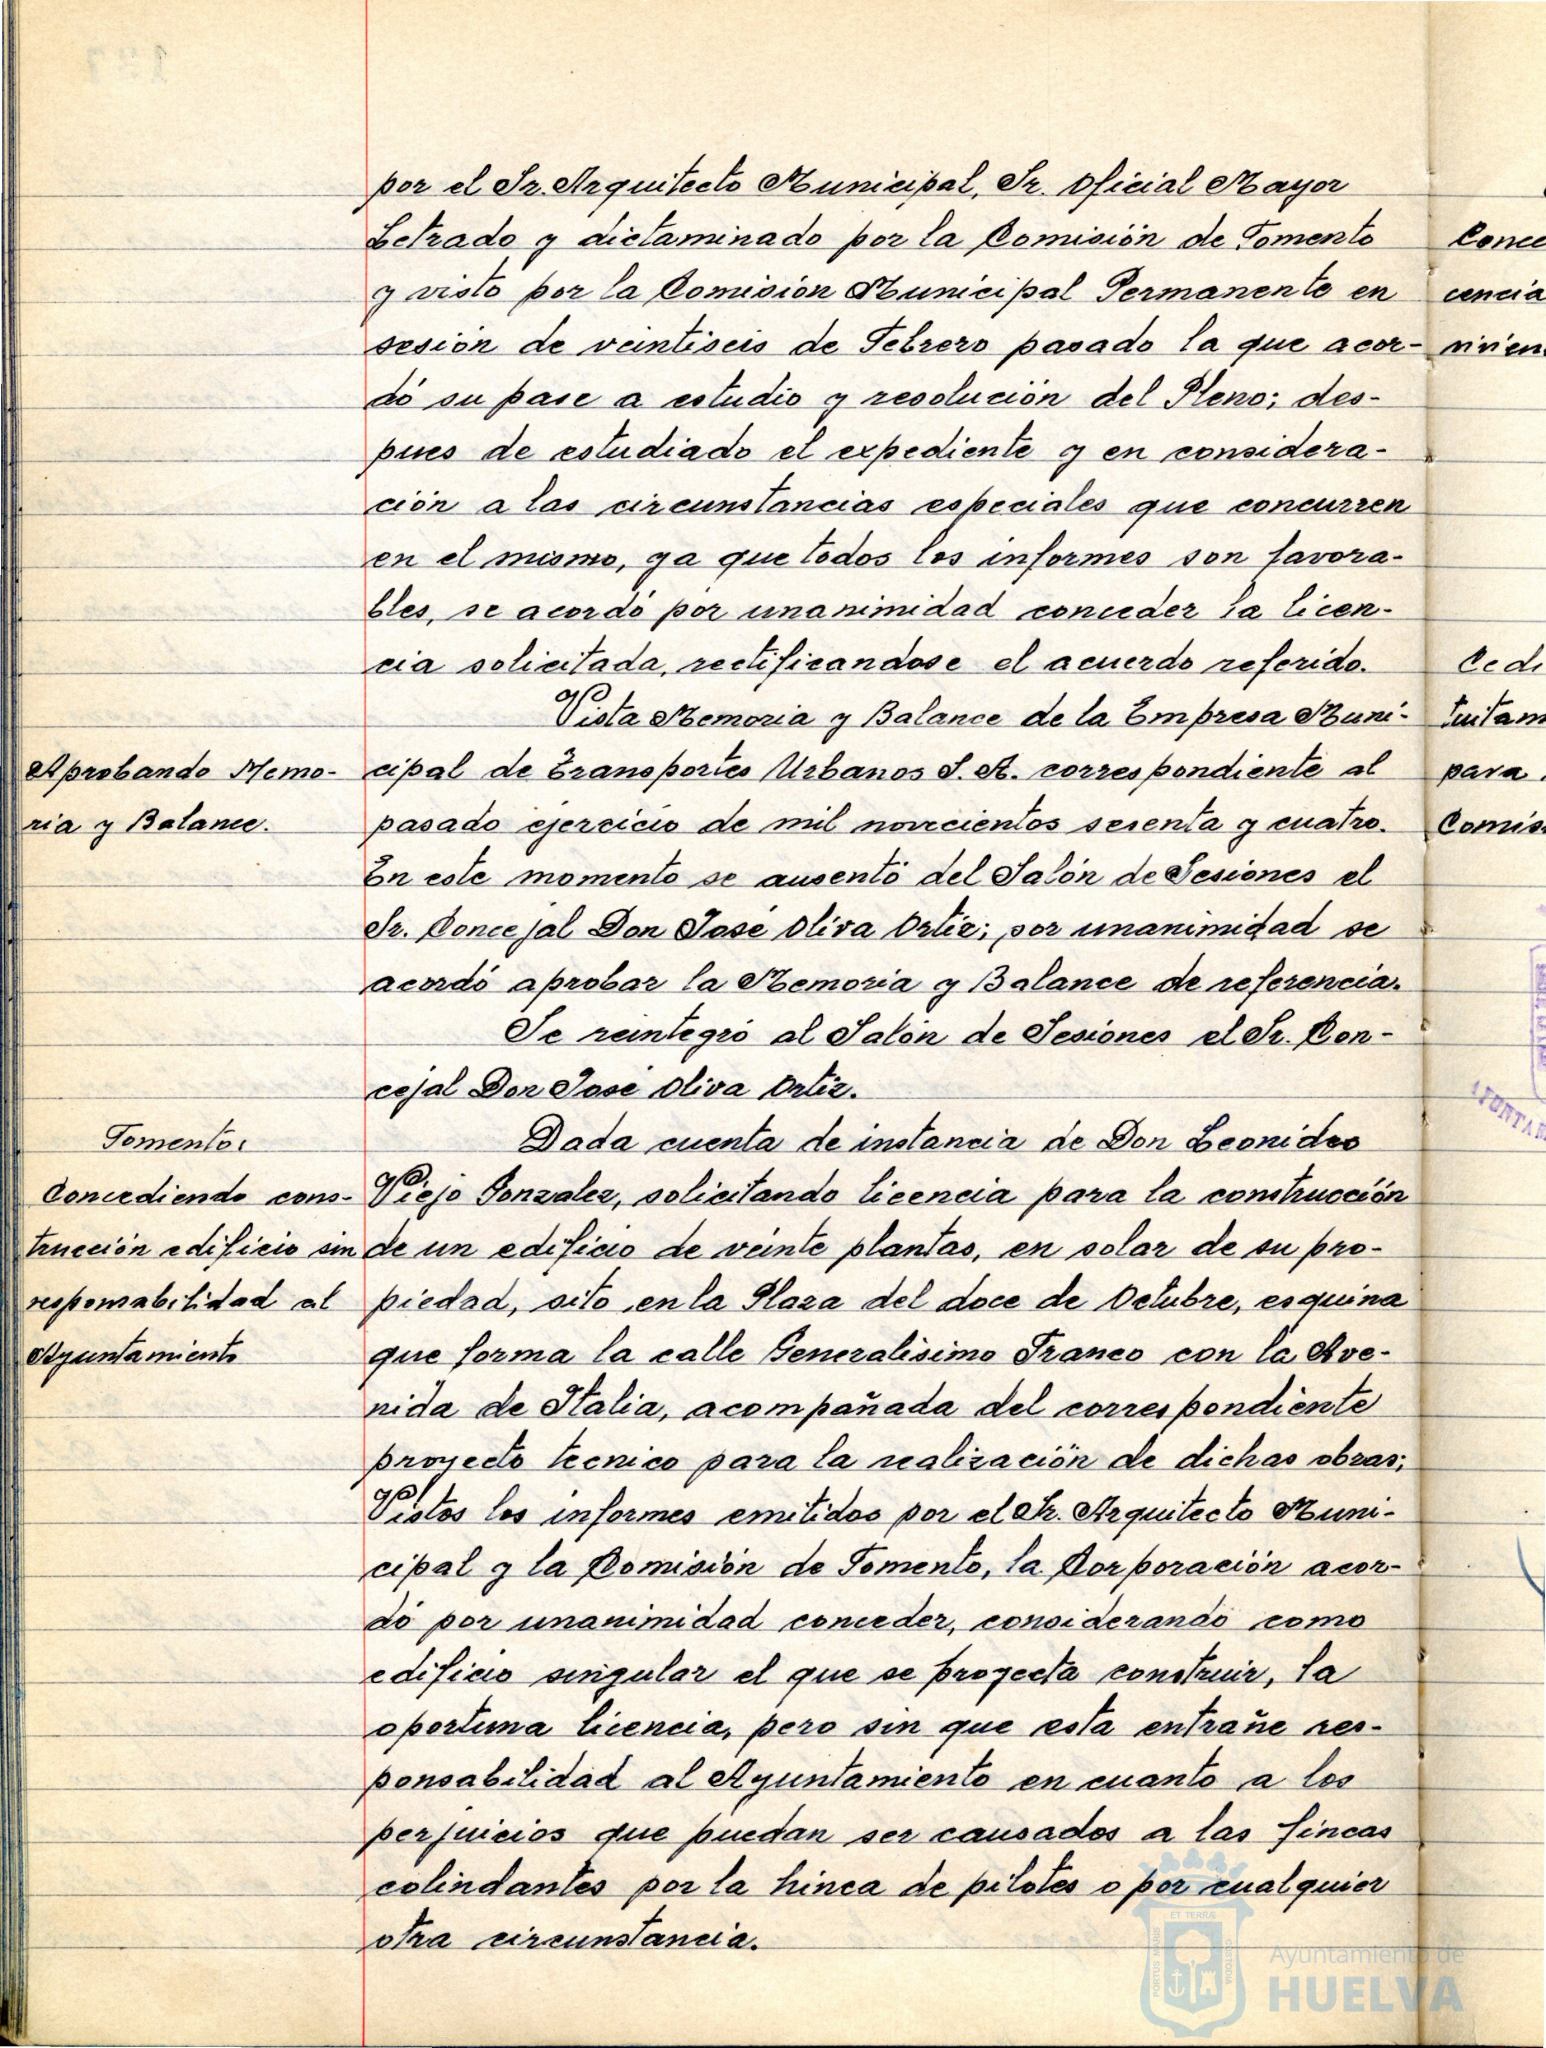 por el Sr. Arquitecto Municipal, Sr. Oficial Mayor
Letrado y dictaminado por la Comisión de Fomento
y visto por la Comisión Municipal Permanente en
sesión de veintiseis de Febrero pasado la que acor-
dó su pase a estudio y resolución del Pleno; des-
pues de estudiado el expediente y en considera-
ción a las circunstancias especiales que concurren
en el mismo, ya que todos los informes son favora-
bles, se acordó por unanimidad conceder la licen-
cia solicitada, rectificandose el acuerdo referido.
Aprobando Memo-
ria y Balance.
Vista Memoria y Balance de la Empresa Muni-
cipal de Transportes Urbanos S. A. correspondiente al
pasado ejercicio de mil novecientos sesenta y cuatro.
En este momento se ausentó del Salón de Sesiones el
Sr. Concejal Don José Oliva Ortiz; por unanimidad se
acordó aprobar la Memoria y Balance de referencia.
Se reintegró al Salón de Sesiones el Sr. Con-
cejal Don José Oliva Ortiz.
Fomento:
Concediendo cons-
trucción edificio sin
responsabilidad al
Ayuntamiento
Dada cuenta de instancia de Don Leonides
Viejo Gonzalez, solicitando licencia para la construcción
de un edificio de veinte plantas, en solar de su pro-
piedad, sito en la Plaza del doce de Octubre, esquina
que forma la calle Generalisimo Franco con la Ave-
nida de Italia, acompañada del correspondiente
proyecto tecnico para la realización de dichas obras;
Vistos los informes emitidos por el Sr. Arquitecto Muni-
cipal y la Comisión de Fomento, la Corporación acor-
dó por unanimidad conceder, considerando como
edificio singular el que se proyecta construir, la
oportuna licencia, pero sin que esta entrañe res-
ponsabilidad al Ayuntamiento en cuanto a los
perjuicios que puedan ser causados a las fincas
colindantes por la hinca de pilotes o por cualquier
otra circunstancia.
Conce
cencia
vivien
Cedi
tuitam
para
Comis
Ayuntamiento de
HUELVA